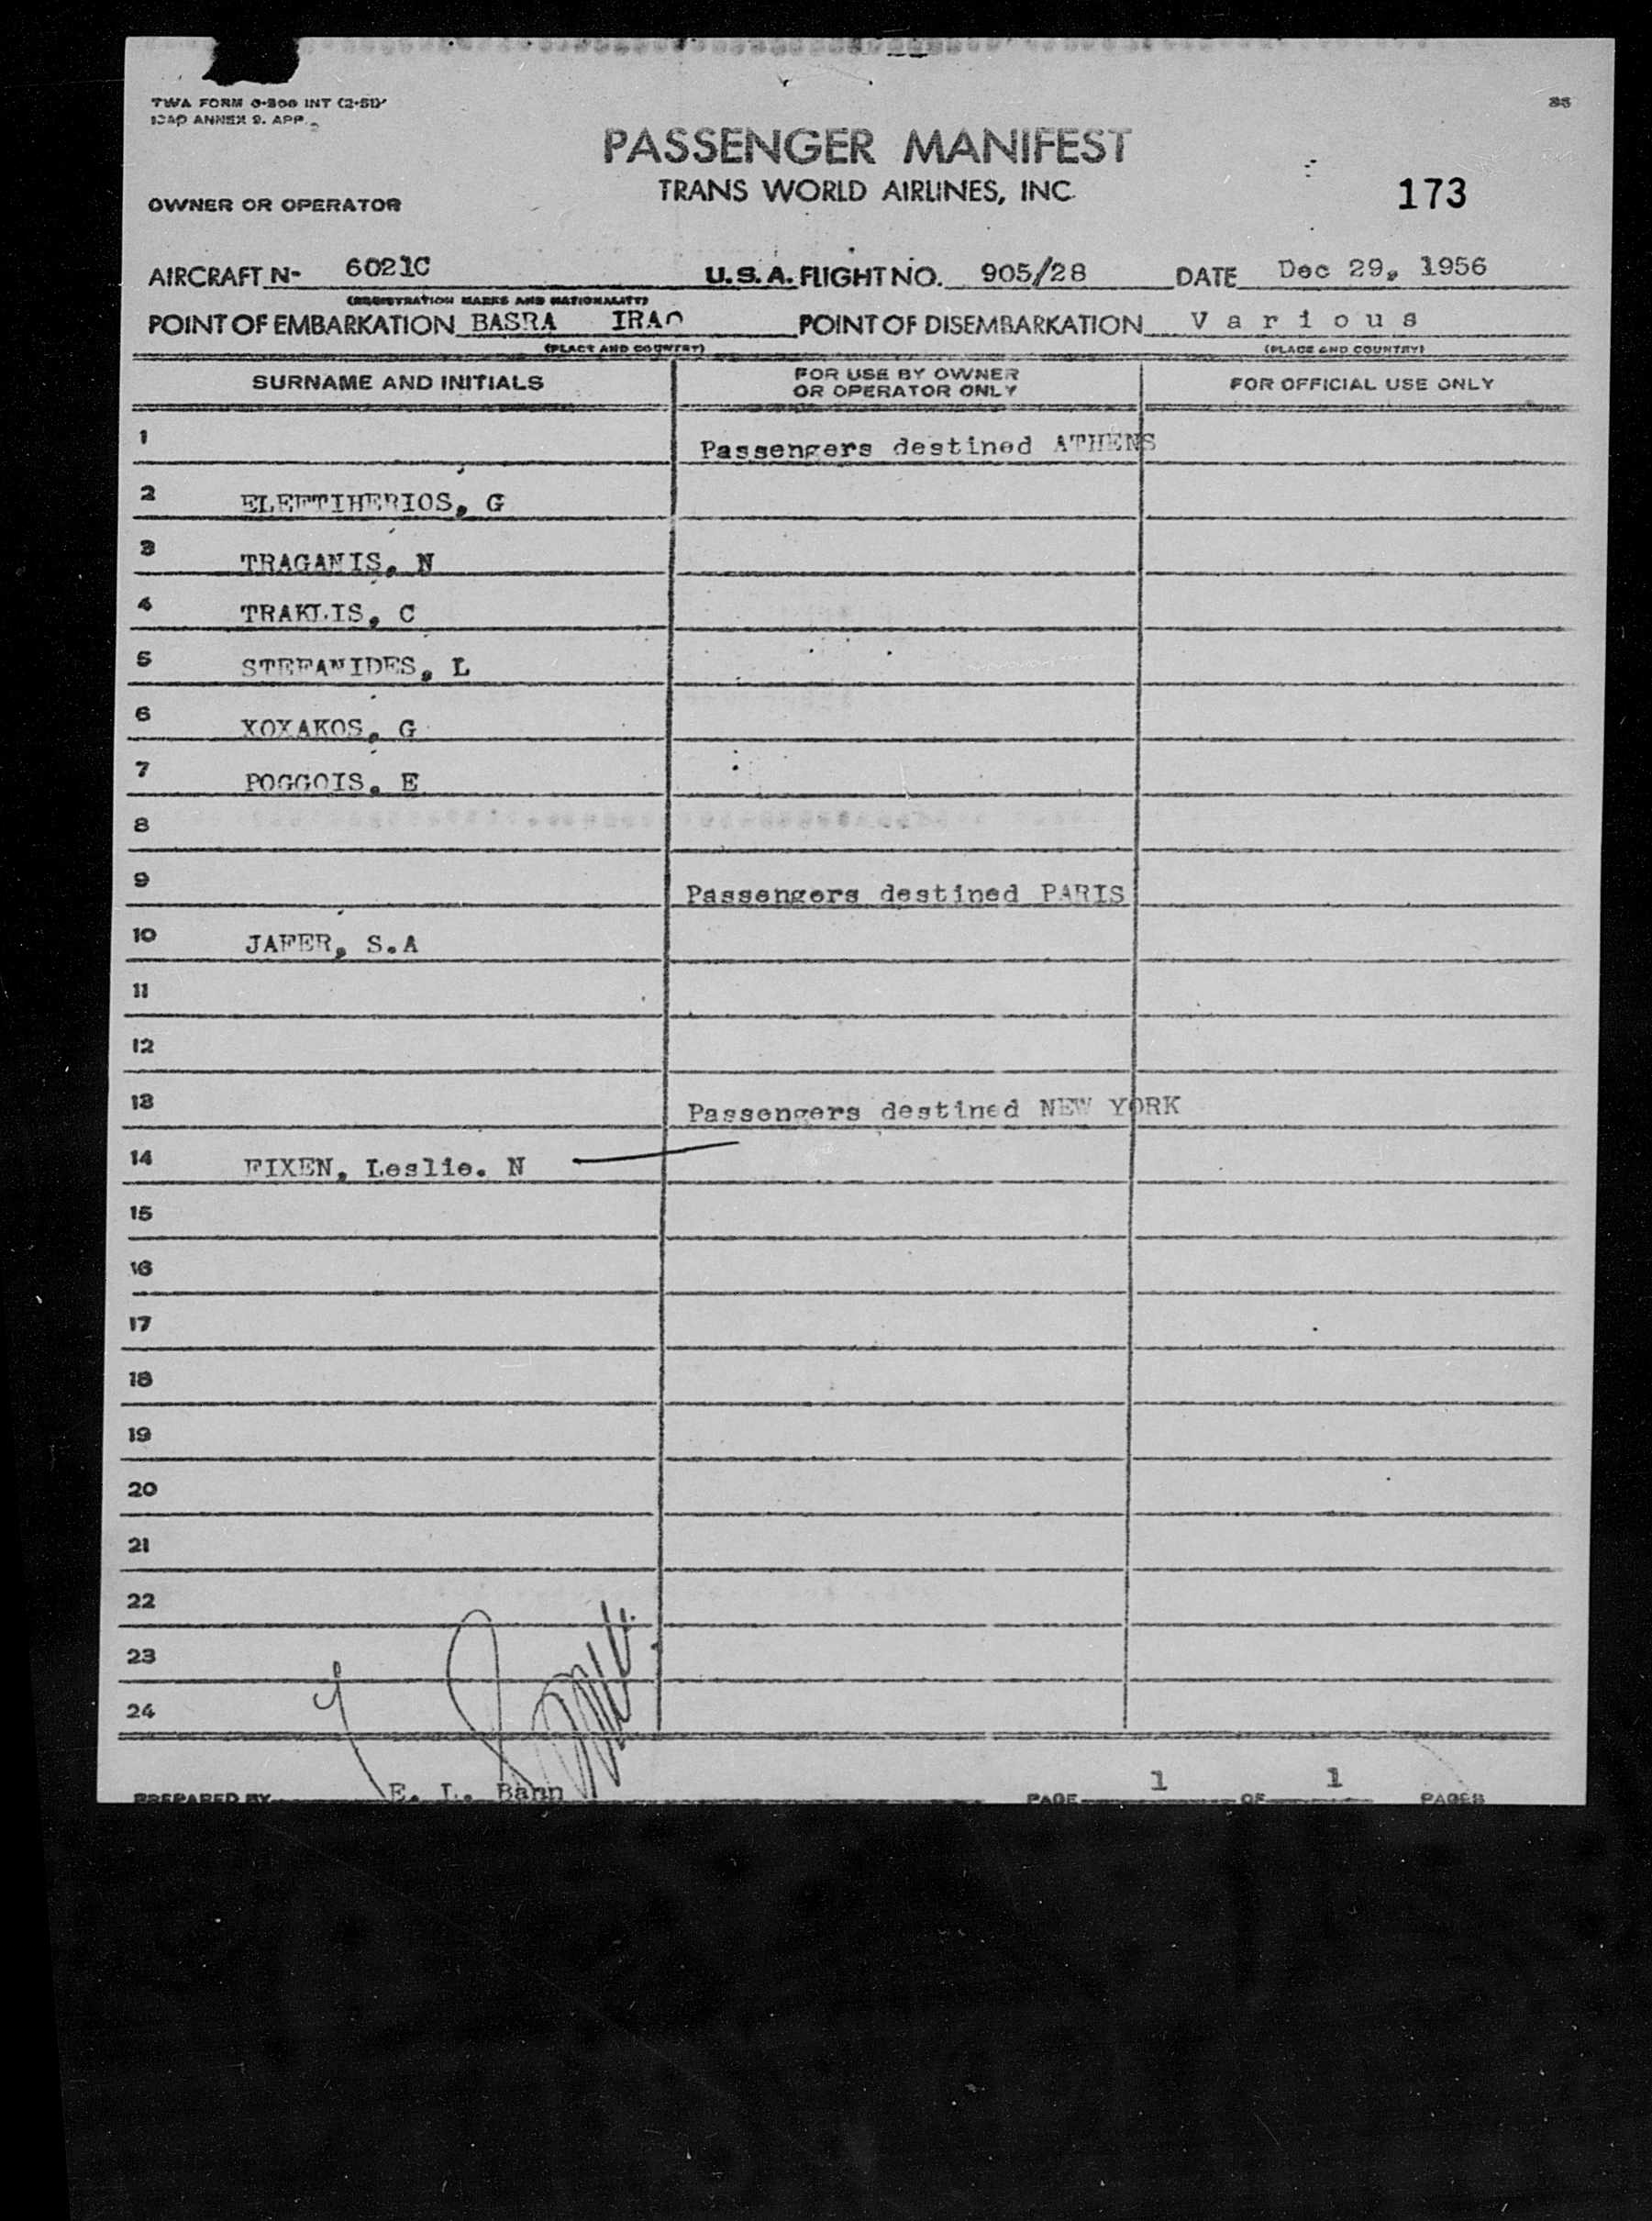 TWA FORM O-206 INT (2-51)
ICAO ANNEX 9. APP. 2
PASSENGER MANIFEST
TRANS WORLD AIRLINES, INC
173
OWNER OR OPERATOR
AIRCRAFT N- 6021C U.S.A. FLIGHT NO. 905/28 DATE Dec 29, 1956
(REGISTRATION MARKS AND NATIONALITY)
POINT OF EMBARKATION BASRA IRAQ POINT OF DISEMBARKATION Various
(PLACE AND COUNTRY) (PLACE AND COUNTRY)
SURNAME AND INITIALS FOR USE BY OWNER OR OPERATOR ONLY FOR OFFICIAL USE ONLY
1 Passengers destined ATHENS
2 ELEFTIHERIOS, G
3 TRAGANIS, N
4 TRAKLIS, C
5 STEFANIDES, L
6 XOXAKOS, G
7 POGGOIS, E
8
9 Passengers destined PARIS
10 JAFER, S.A
11
12
13 Passengers destined NEW YORK
14 FIXEN, Leslie. N
15
16
17
18
19
20
21
22
23
24
PREPARED BY E. L. Bann PAGE 1 OF 1 PAGES